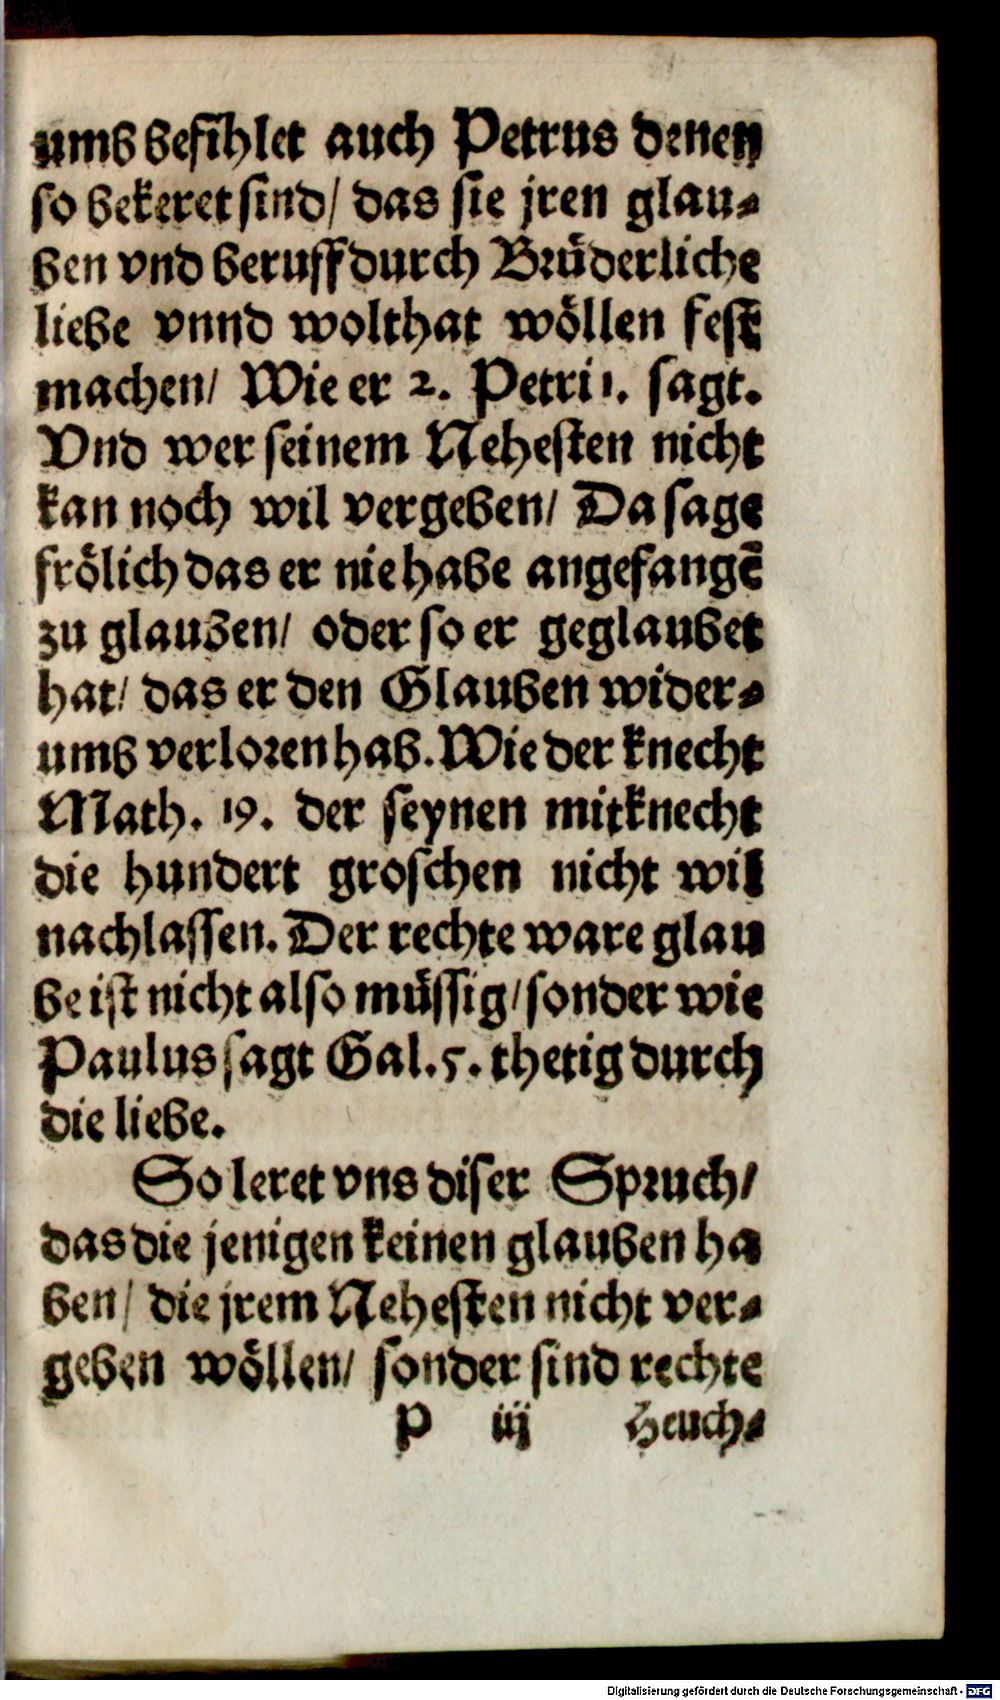 umb befihlet auch Petrus denen
so bekeret sind/ das sie jren glau-
ben vnd beruff durch Brüderliche
liebe vnnd wolthat wöllen fest
machen/ Wie er 2. Petri 1. sagt.
Vnd wer seinem Nehesten nicht
kan noch wil vergeben/ Da sage
frölich das er nie habe angefangē
zu glauben/ oder so er geglaubet
hat/ das er den Glauben wider-
umb verloren hab. Wie der knecht
Math. 19. der seynen mitknecht
die hundert groschen nicht wil
nachlassen. Der rechte ware glau
be ist nicht also müssig/ sonder wie
Paulus sagt Gal. 5. thetig durch
die liebe.
So leret vns diser Spruch/
das die jenigen keinen glauben ha
ben/ die jrem Nehesten nicht ver-
geben wöllen/ sonder sind rechte
P iij Heuch-
Digitalisierung gefördert durch die Deutsche Forschungsgemeinschaft - DFG